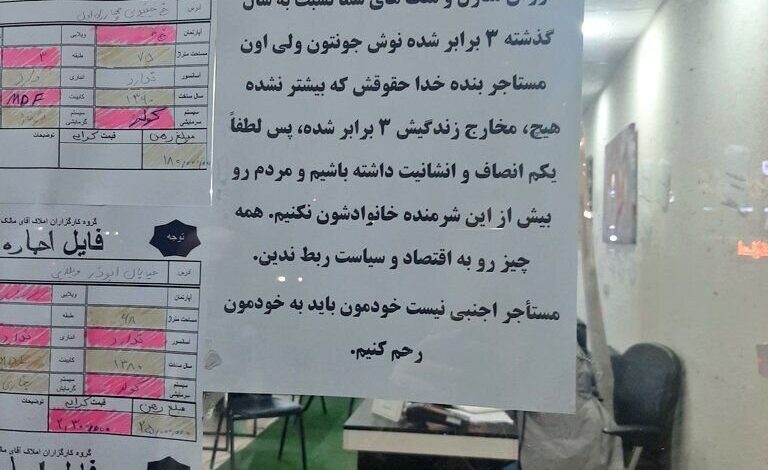 گذشته ۳ برابر شده نوش جونتون ولی اون
مستاجر بنده خدا حقوقش که بیشتر نشده
هیچ، مخارج زندگیش ۳ برابر شده، پس لطفاً
یکم انصاف و انشانیت داشته باشیم و مردم رو
بیش از این شرمنده خانوادشون نکنیم. همه
چیز رو به اقتصاد و سیاست ربط ندین.
مستأجر اجنبی نیست خودمون باید به خودمون
رحم کنیم.
آدرس
آپارتمان ویلایی
مساحت متراژ ۷۵ طبقه ۳
آسانسور ندارد انباری
سال ساخت ۱۳۹۰ کابینت MDF
سیستم سرمایشی کولر سیستم گرمایشی
مبلغ رهن قیمت کرایه توضیحات
۱۸۰,۰۰۰,۰۰۰
گروه کارگزاران املاک آقای مالک
توجه
فایل اجاره
آدرس خیابان
آپارتمان ویلایی
مساحت متراژ ۶۸ طبقه
ندارد
سال ساخت ۱۳۸۰ کابینت
سیستم سرمایشی کولر سیستم گرمایشی بخاری
مبلغ رهن قیمت کرایه توضیحات
گروه کارگزاران املاک آقای مالک